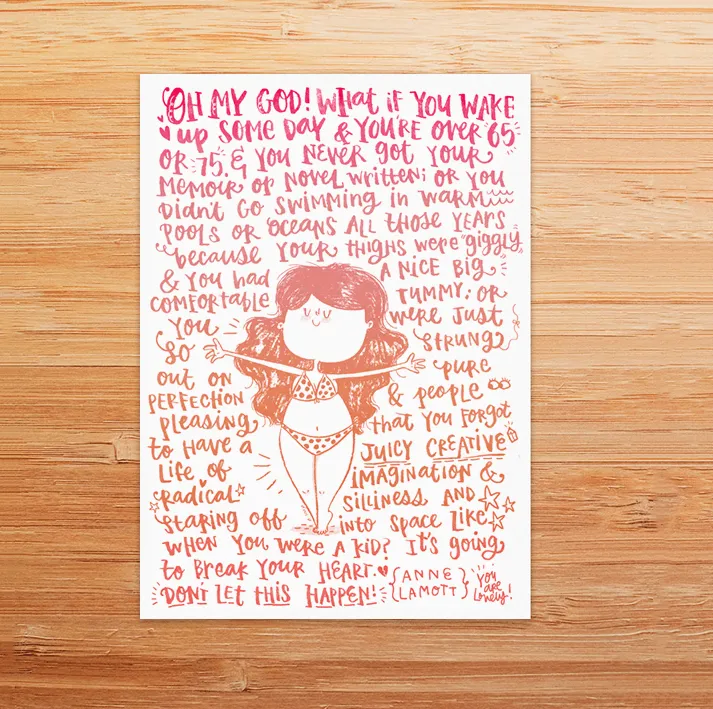 OH MY GOD! WHAT iF YOU WAKE
up SOME DAY & YOU'RE OVER 65
OR 75, & YOU NEVER GOT YOUR
MEMOIR OR NOVEL WRITTEN; OR YOU
DIDN'T GO SWIMMING IN WARM
POOLS OR OCEANS ALL THOSE YEARS
because YOUR THIGHS WERE "giggly"
& YOU HAD A NICE BIG
COMFORTABLE TUMMY; OR
YOU WERE JUST
SO STRUNG
OUT ON PURE
PERFECTION & PEOPLE
PLEASING, THAT YOU FORGOT
to HAVE A JUICY CREATIVE
LIFE OF IMAGINATION &
RADICAL SILLINESS AND
STARING OFF INTO SPACE LIKE
WHEN YOU WERE A KID? IT'S GOING
to BREAK YOUR HEART. {ANNE
DON'T LET THIS HAPPEN! LAMOTT}
YOU
ARE
Lovely!